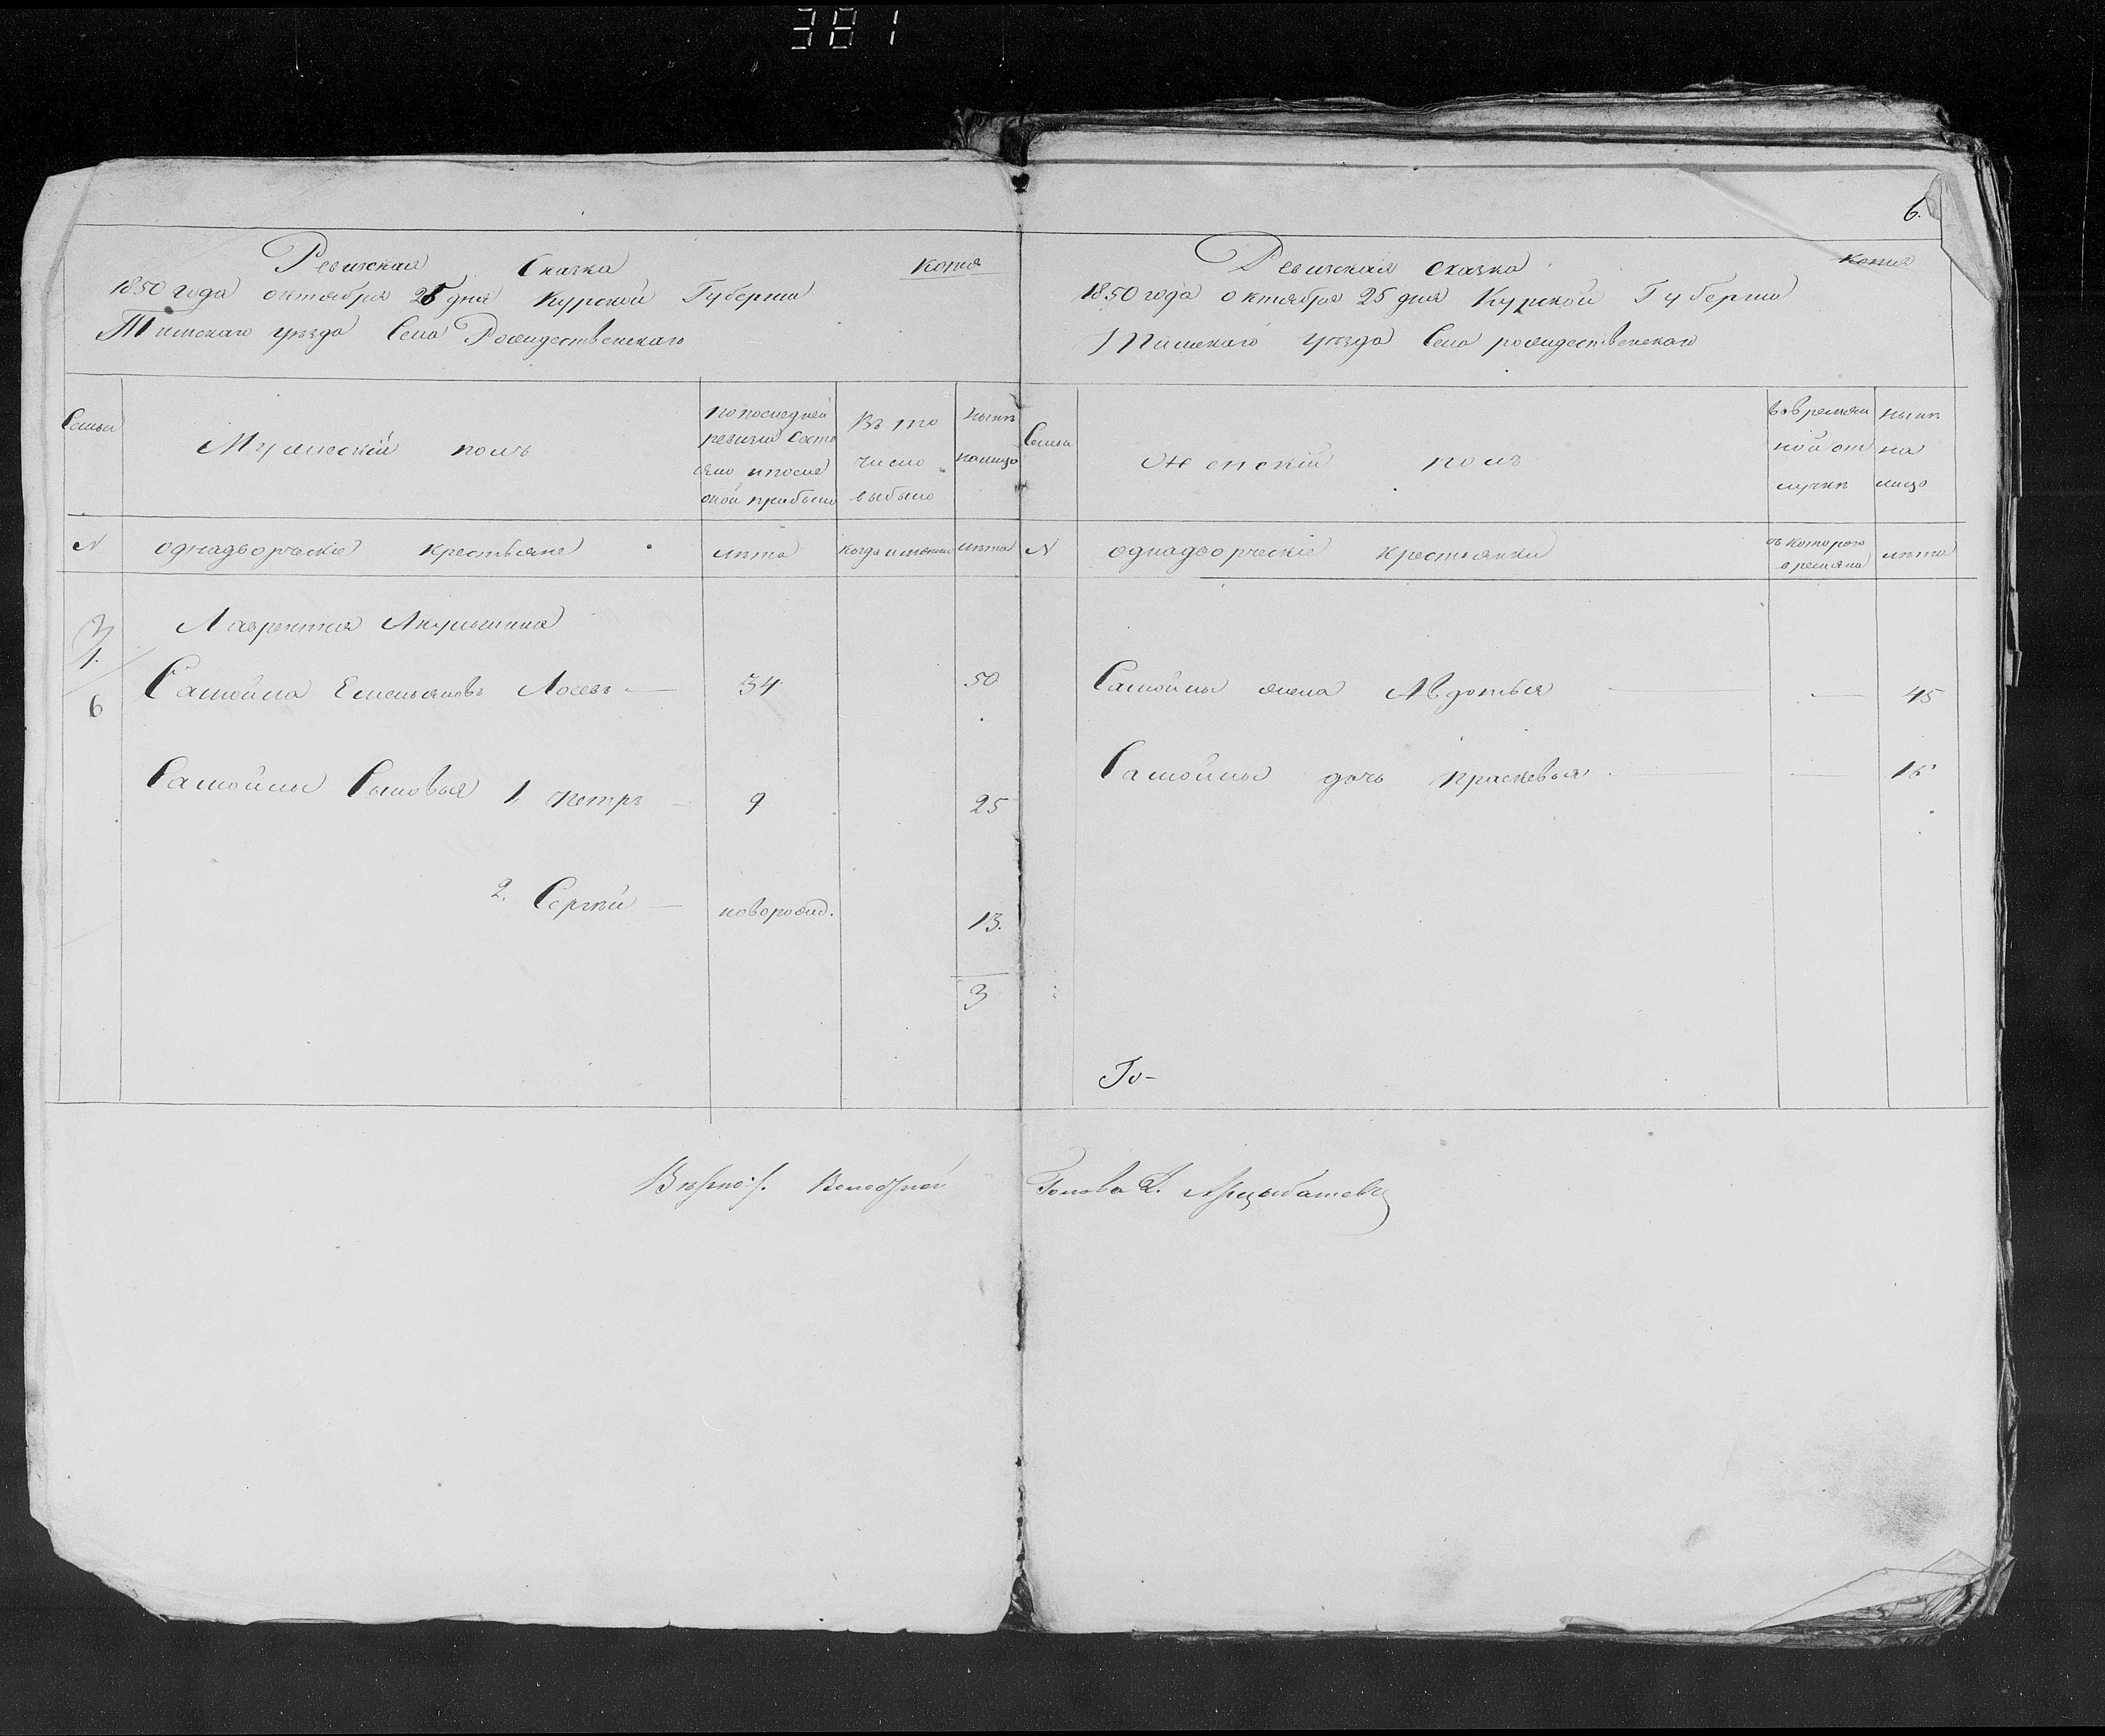 381
6.
Ревизская Сказка Копия
1850 года октября 25 дня Курской Губернии
Тимскаго уѣзда Села Рождественскаго
Семьи
Мужескій полъ
по последней
ревизии состо
яло и после
оной прибыло
Въ то
число
выбыло
Нынѣ
на лицо
N
однадворческіе крестьяне
лѣта
когда именно
лѣта
3
1.
6
Лаврентия Акульшина
Самойла Емельяновъ Лосевъ — 34 50
Самойлы Сыновья 1. Петръ — 9 25
2. Сергѣй — новорожд. 13.
3
Ревизская сказка Копия
1850 года октября 25 дня Курской Губернии
Тимскаго уѣзда Села рождественскаго
Семьи
Женскій полъ
во времян
ной от
лучкѣ
нынѣ
на
лицо
N
однадворческіе крестьянки
съ котораго
времяни
лѣта
Самойлы жена Авдотья — — 45
Самойлы дочь Прасковья — — 15
Го-
Вѣрно:/. Волостной Голова Д. Арцыбашевъ